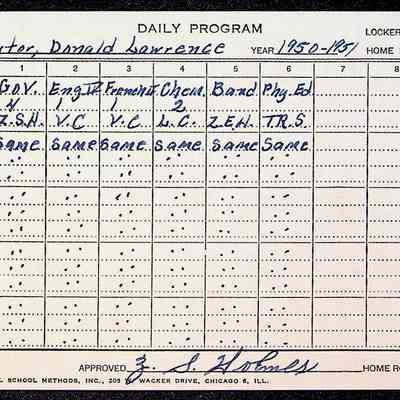 DAILY PROGRAM
LOCKER
Donald Lawrence YEAR 1950-1951 HOME
1 2 3 4 5 6 7 8
Gov. Eng IV French II Chem. Band Phy. Ed
4 1 1 2
Z.S.H. V.C V.C L.C. Z.E.H. T.R.S.
Same Same Same Same Same Same
APPROVED Z. S. Holmes HOME RO
L SCHOOL METHODS, INC., 205 W WACKER DRIVE, CHICAGO 6, ILL.